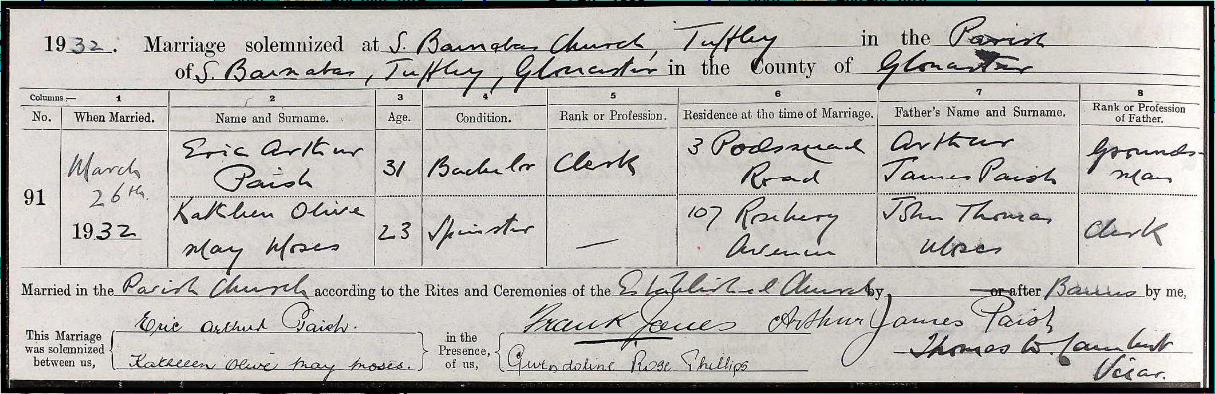 1932. Marriage solemnized at S. Barnabas Church, Tuffley in the Parish
of S. Barnabas, Tuffley, Gloucester in the County of Gloucester
Columns:— 1 2 3 4 5 6 7 8
No. When Married. Name and Surname. Age. Condition. Rank or Profession. Residence at the time of Marriage. Father's Name and Surname. Rank or Profession of Father.
91
March
26th.
1932
Eric Arthur
Paish
31 Bachelor Clerk
3 Podsmead
Road
Arthur
James Paish
Grounds-
man
Kathleen Olive
May Moses
23 Spinster —
107 Rosebery
Avenue
John Thomas
Moses
Clerk
Married in the Parish Church according to the Rites and Ceremonies of the Established Church by — or after Banns by me,
This Marriage
was solemnized
between us,
Eric Arthur Paish.
Kathleen Olive May Moses.
in the
Presence,
of us,
Frank Jones Arthur James Paish
Gwendoline Rose Phillips
Thomas W.
Vicar.